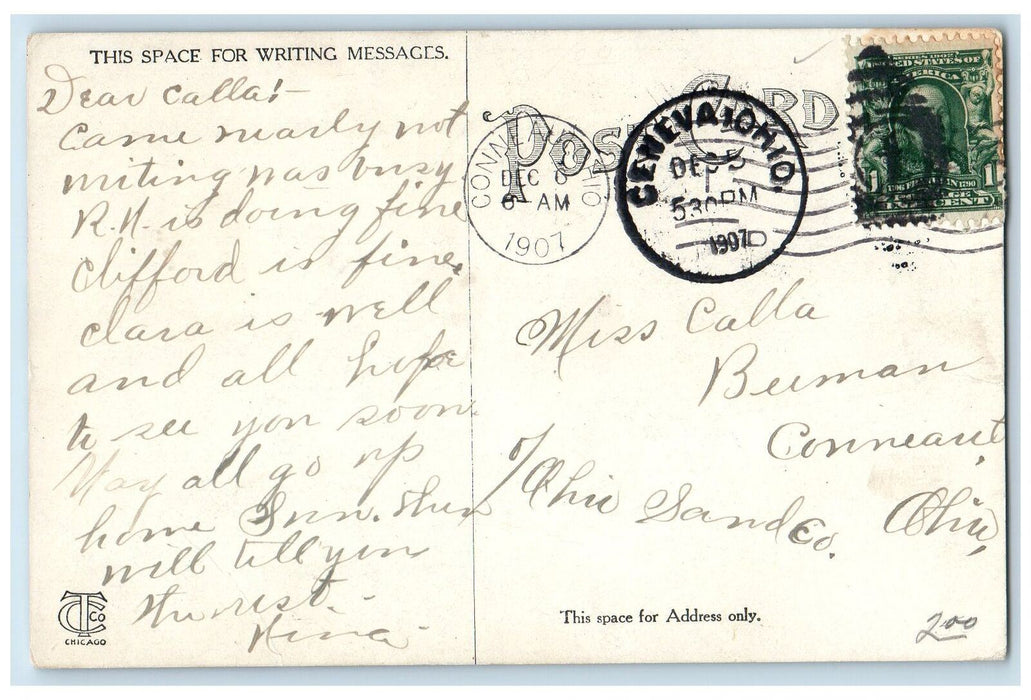 THIS SPACE FOR WRITING MESSAGES.
Dear Calla!-
Came nearly not
writing was busy.
R.H. is doing fine
Clifford is fine.
Clara is well
and all hope
to see you soon.
May all go up
home Sun. then
will tell you
the rest.-
Nina-
CTCO
CHICAGO
POST CARD
CONNEAUT OHIO
DEC 6
6- AM
1907
GENEVA, OHIO.
DEC 5
530PM
1907
SERIES 1902
UNITED STATES OF
AMERICA
1
FRANKLIN
IN 1790
ONE CENT
Miss Calla
Beeman
Conneaut,
c/o Ohio Sand Co. Ohio,
This space for Address only.
2.00